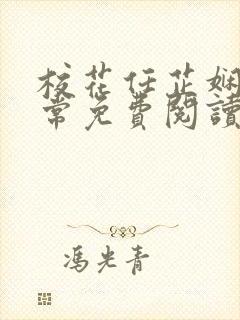 校花任芷娴
常免费阅读
冯光青